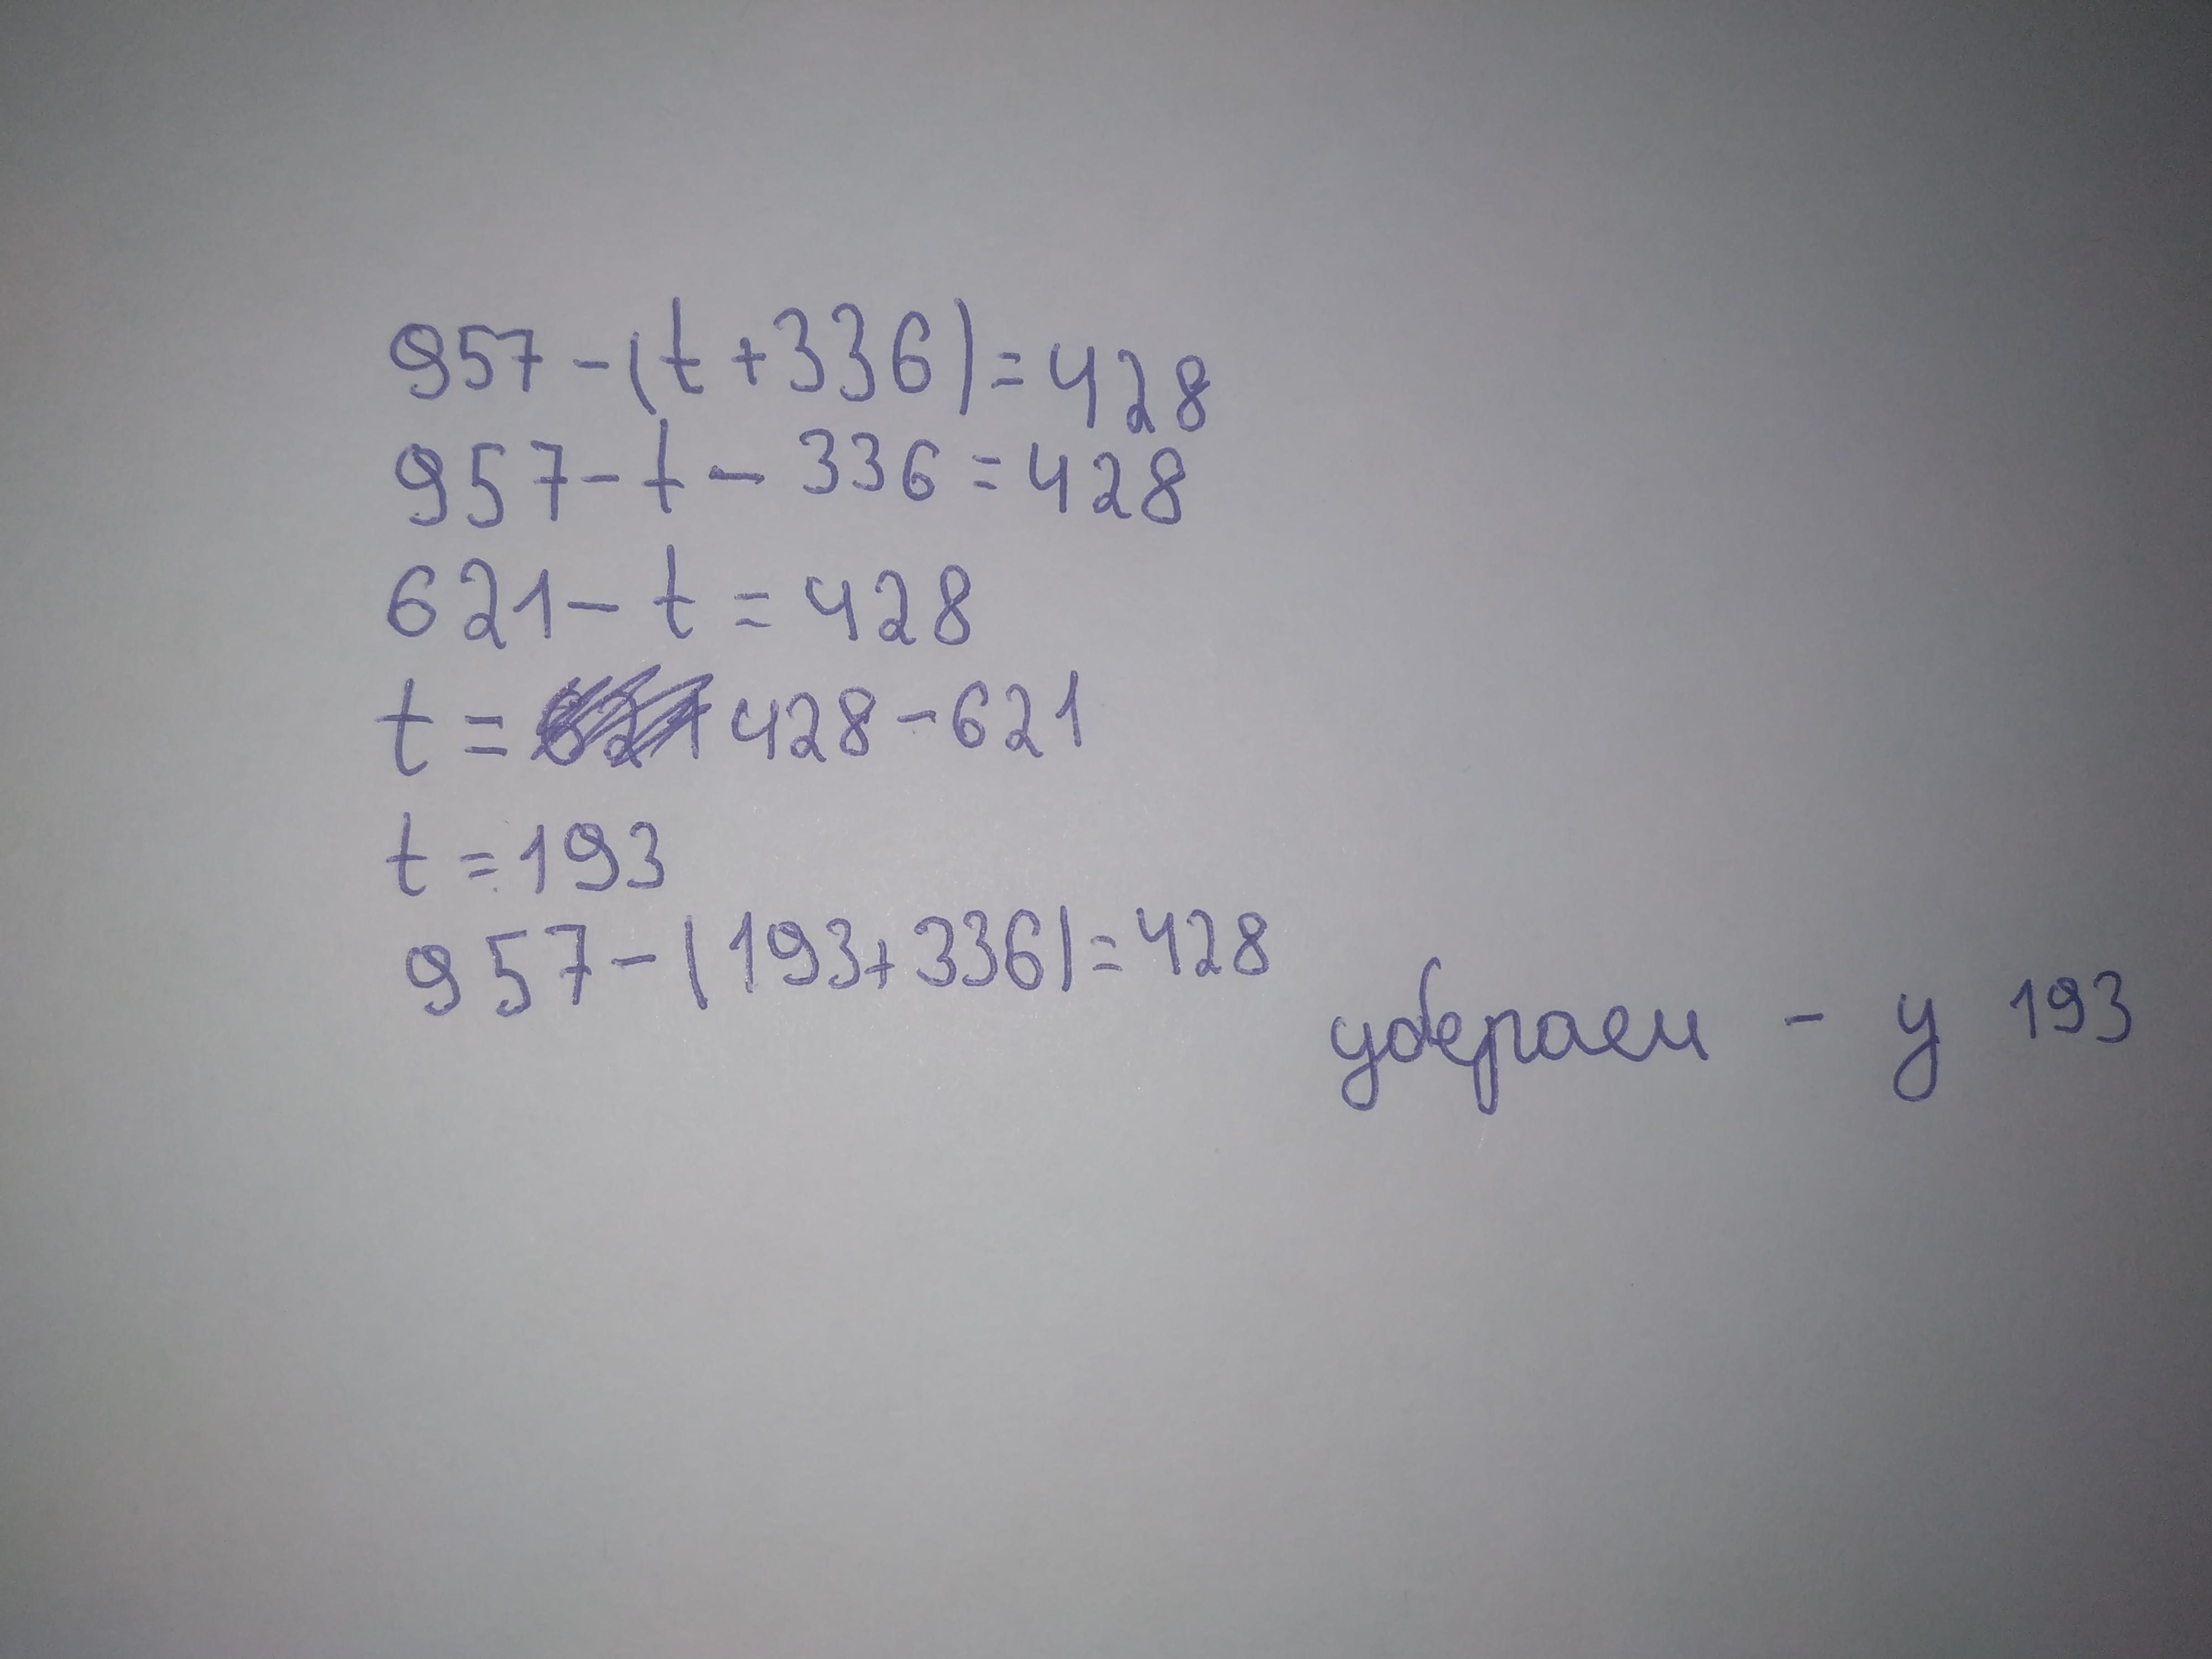 957-(t+336)=428
957-t-336=428
621-t=428
t=428-621
t=193
957-(193+336)=428
убераем - у 193